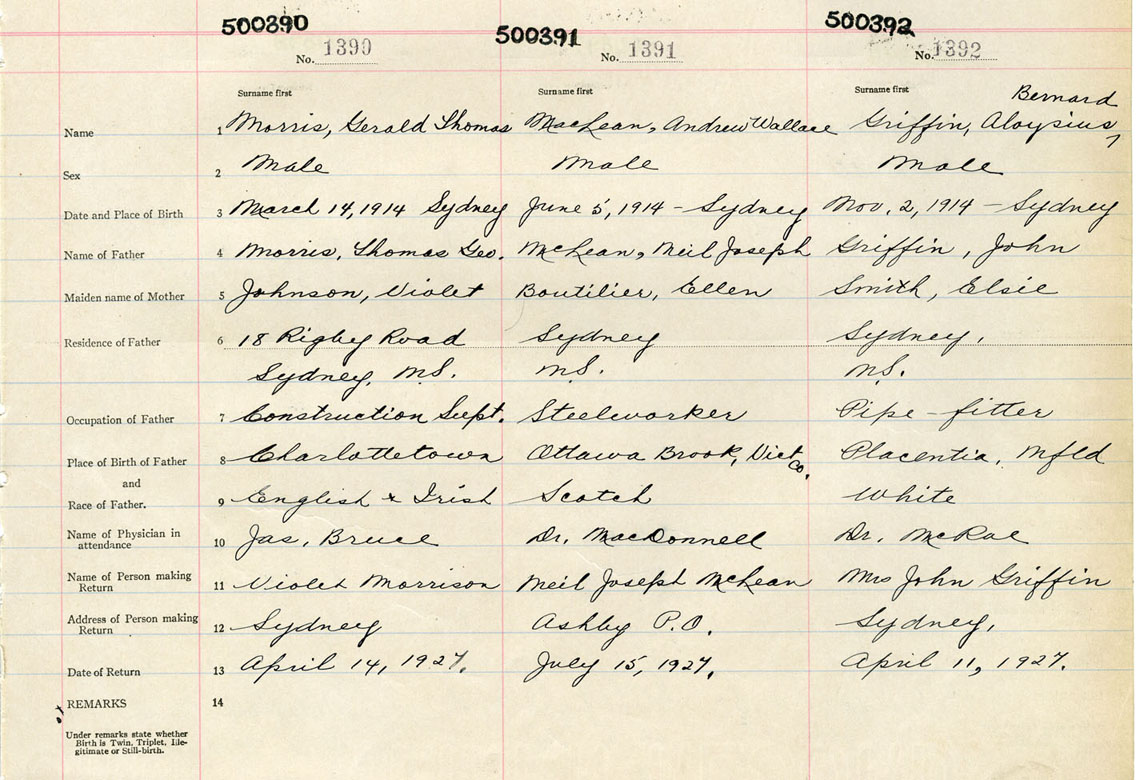 500390 500391 500392
No. 1390 No. 1391 No. 1392
Surname first Surname first Surname first
Bernard
Name 1 Morris, Gerald Thomas MacLean, Andrew Wallace Griffin, Aloysius,
Sex 2 Male Male Male
Date and Place of Birth 3 March 14, 1914 Sydney June 5, 1914 - Sydney Nov. 2, 1914 - Sydney
Name of Father 4 Morris, Thomas Geo. McLean, Neil Joseph Griffin, John
Maiden name of Mother 5 Johnson, Violet Boutilier, Ellen Smith, Elsie
Residence of Father 6 18 Rigby Road Sydney Sydney,
Sydney, N.S. N.S. N.S.
Occupation of Father 7 Construction Supt. Steelworker Pipe-fitter
Place of Birth of Father 8 Charlottetown Ottawa Brook, Vict Co. Placentia, Nfld
and
Race of Father. 9 English & Irish Scotch White
Name of Physician in
attendance 10 Jas, Bruce Dr. MacDonnell Dr. McRae
Name of Person making
Return 11 Violet Morrison Neil Joseph McLean Mrs John Griffin
Address of Person making
Return 12 Sydney Ashby P.O. Sydney,
Date of Return 13 April 14, 1927. July 15, 1927. April 11, 1927.
REMARKS 14
Under remarks state whether
Birth is Twin, Triplet, Ille-
gitimate or Still-birth.